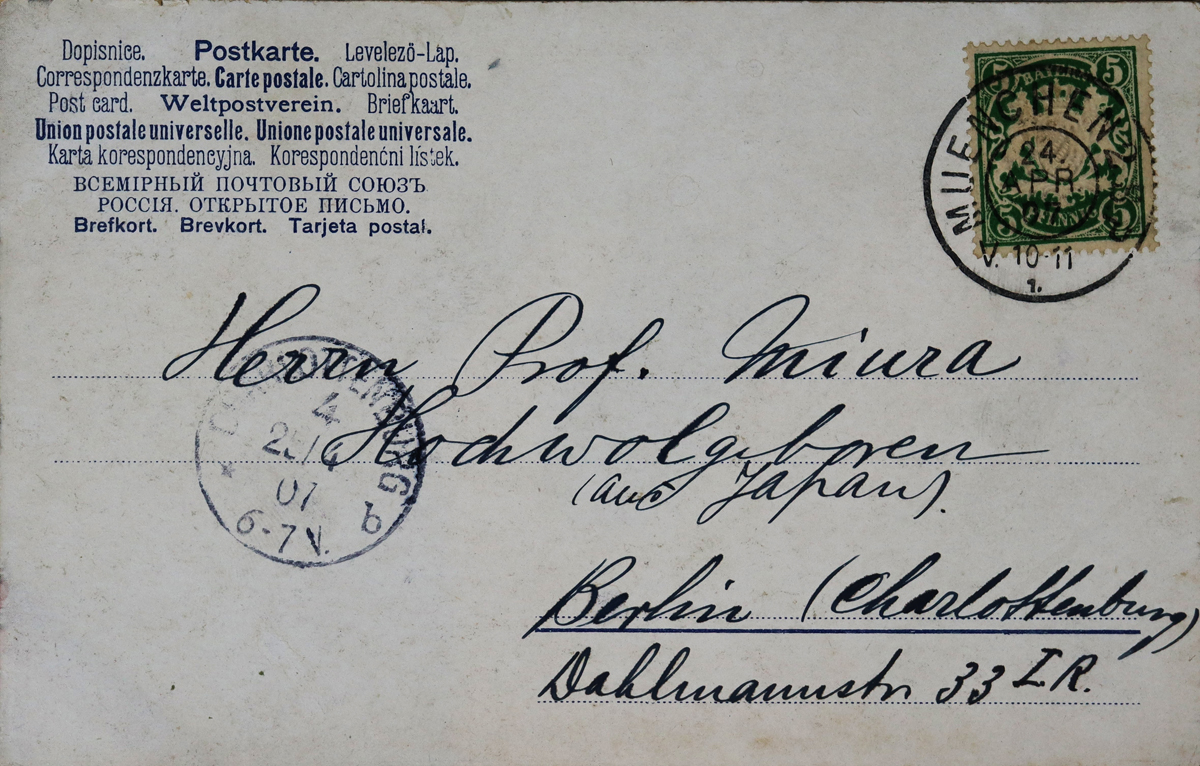 Dopisnice. Postkarte. Levelező-Láp.
Correspondenzkarte. Carte postale. Cartolina postale.
Post card. Weltpostverein. Briefkaart.
Union postale universelle. Unione postale universale.
Karta korespondencyjna. Korespondenćni lístek.
ВСЕМІРНЫЙ ПОЧТОВЫЙ СОЮЗЪ
РОССІЯ. ОТКРЫТОЕ ПИСЬМО.
Brefkort. Brevkort. Tarjeta postal.
5 BAYERN 5
5 5
MUENCHEN
24.
APR
V. 10-11
1.
Herrn Prof. Miura
Hochwolgeboren
(aus Japan).
Berlin (Charlottenburg)
Dahlmannstr 33 I R.
CHARLOTTENBURG b
4
07
6-7 V.